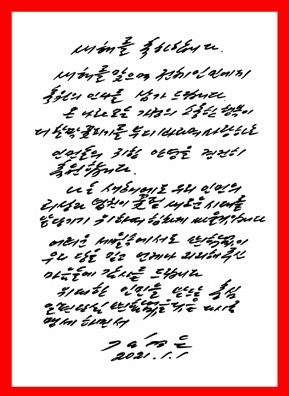 새해를 축하합니다.
새해를 맞으며 전체 인민에게
축원의 인사를 삼가 드립니다.
온 나라 모든 가정의 소중한 행복이
더 활짝 꽃피기를 부디 바라며 사랑하는
인민들의 귀한 안녕을 경건히
축원합니다.
나는 새해에도 우리 인민의
리상과 념원이 꽃필 새로운 시대를
앞당기기 위하여 힘차게 싸울것입니다
어려운 세월속에서도 변함없이
우리 당을 믿고 언제나 지지해주신
마음들에 감사를 드립니다.
위대한 인민을 받드는 충심
일편단심 변함없을것을 다시금
맹세하면서
김정은
2021.1.1